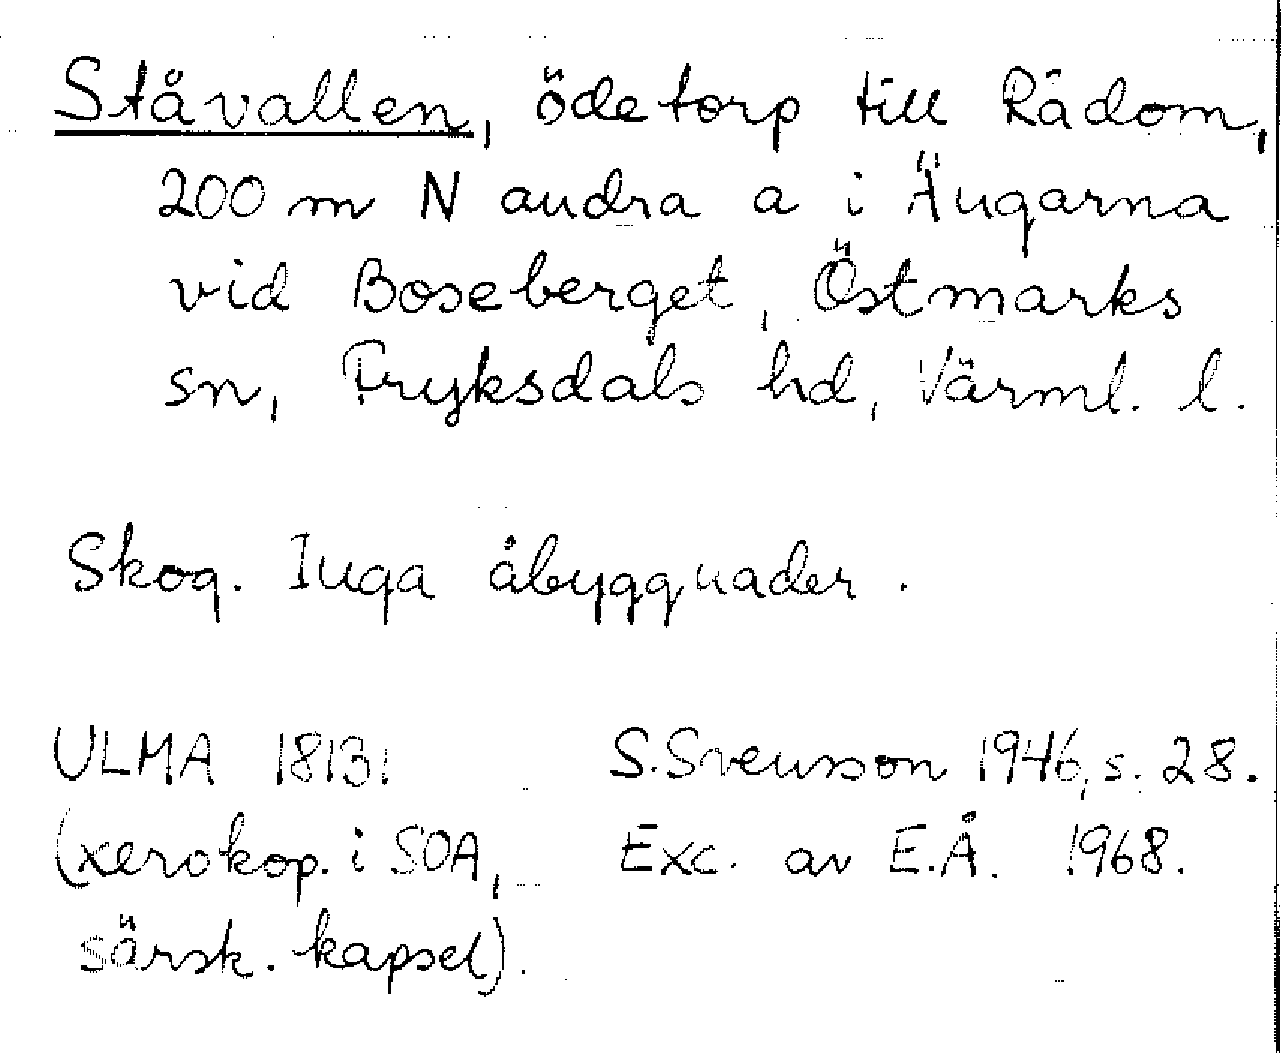 Ståvallen, ödetorp till Rådom,
200 m N andra a i Ängarna
vid Boseberget, Östmarks
sn, Fryksdals hd, Värml. l.
Skog. Inga åbyggnader.
ULMA 18131 S. Svensson 1946, s. 28.
(xerokop. i SOA, Exc. av E.Å. 1968.
särsk. kapsel).